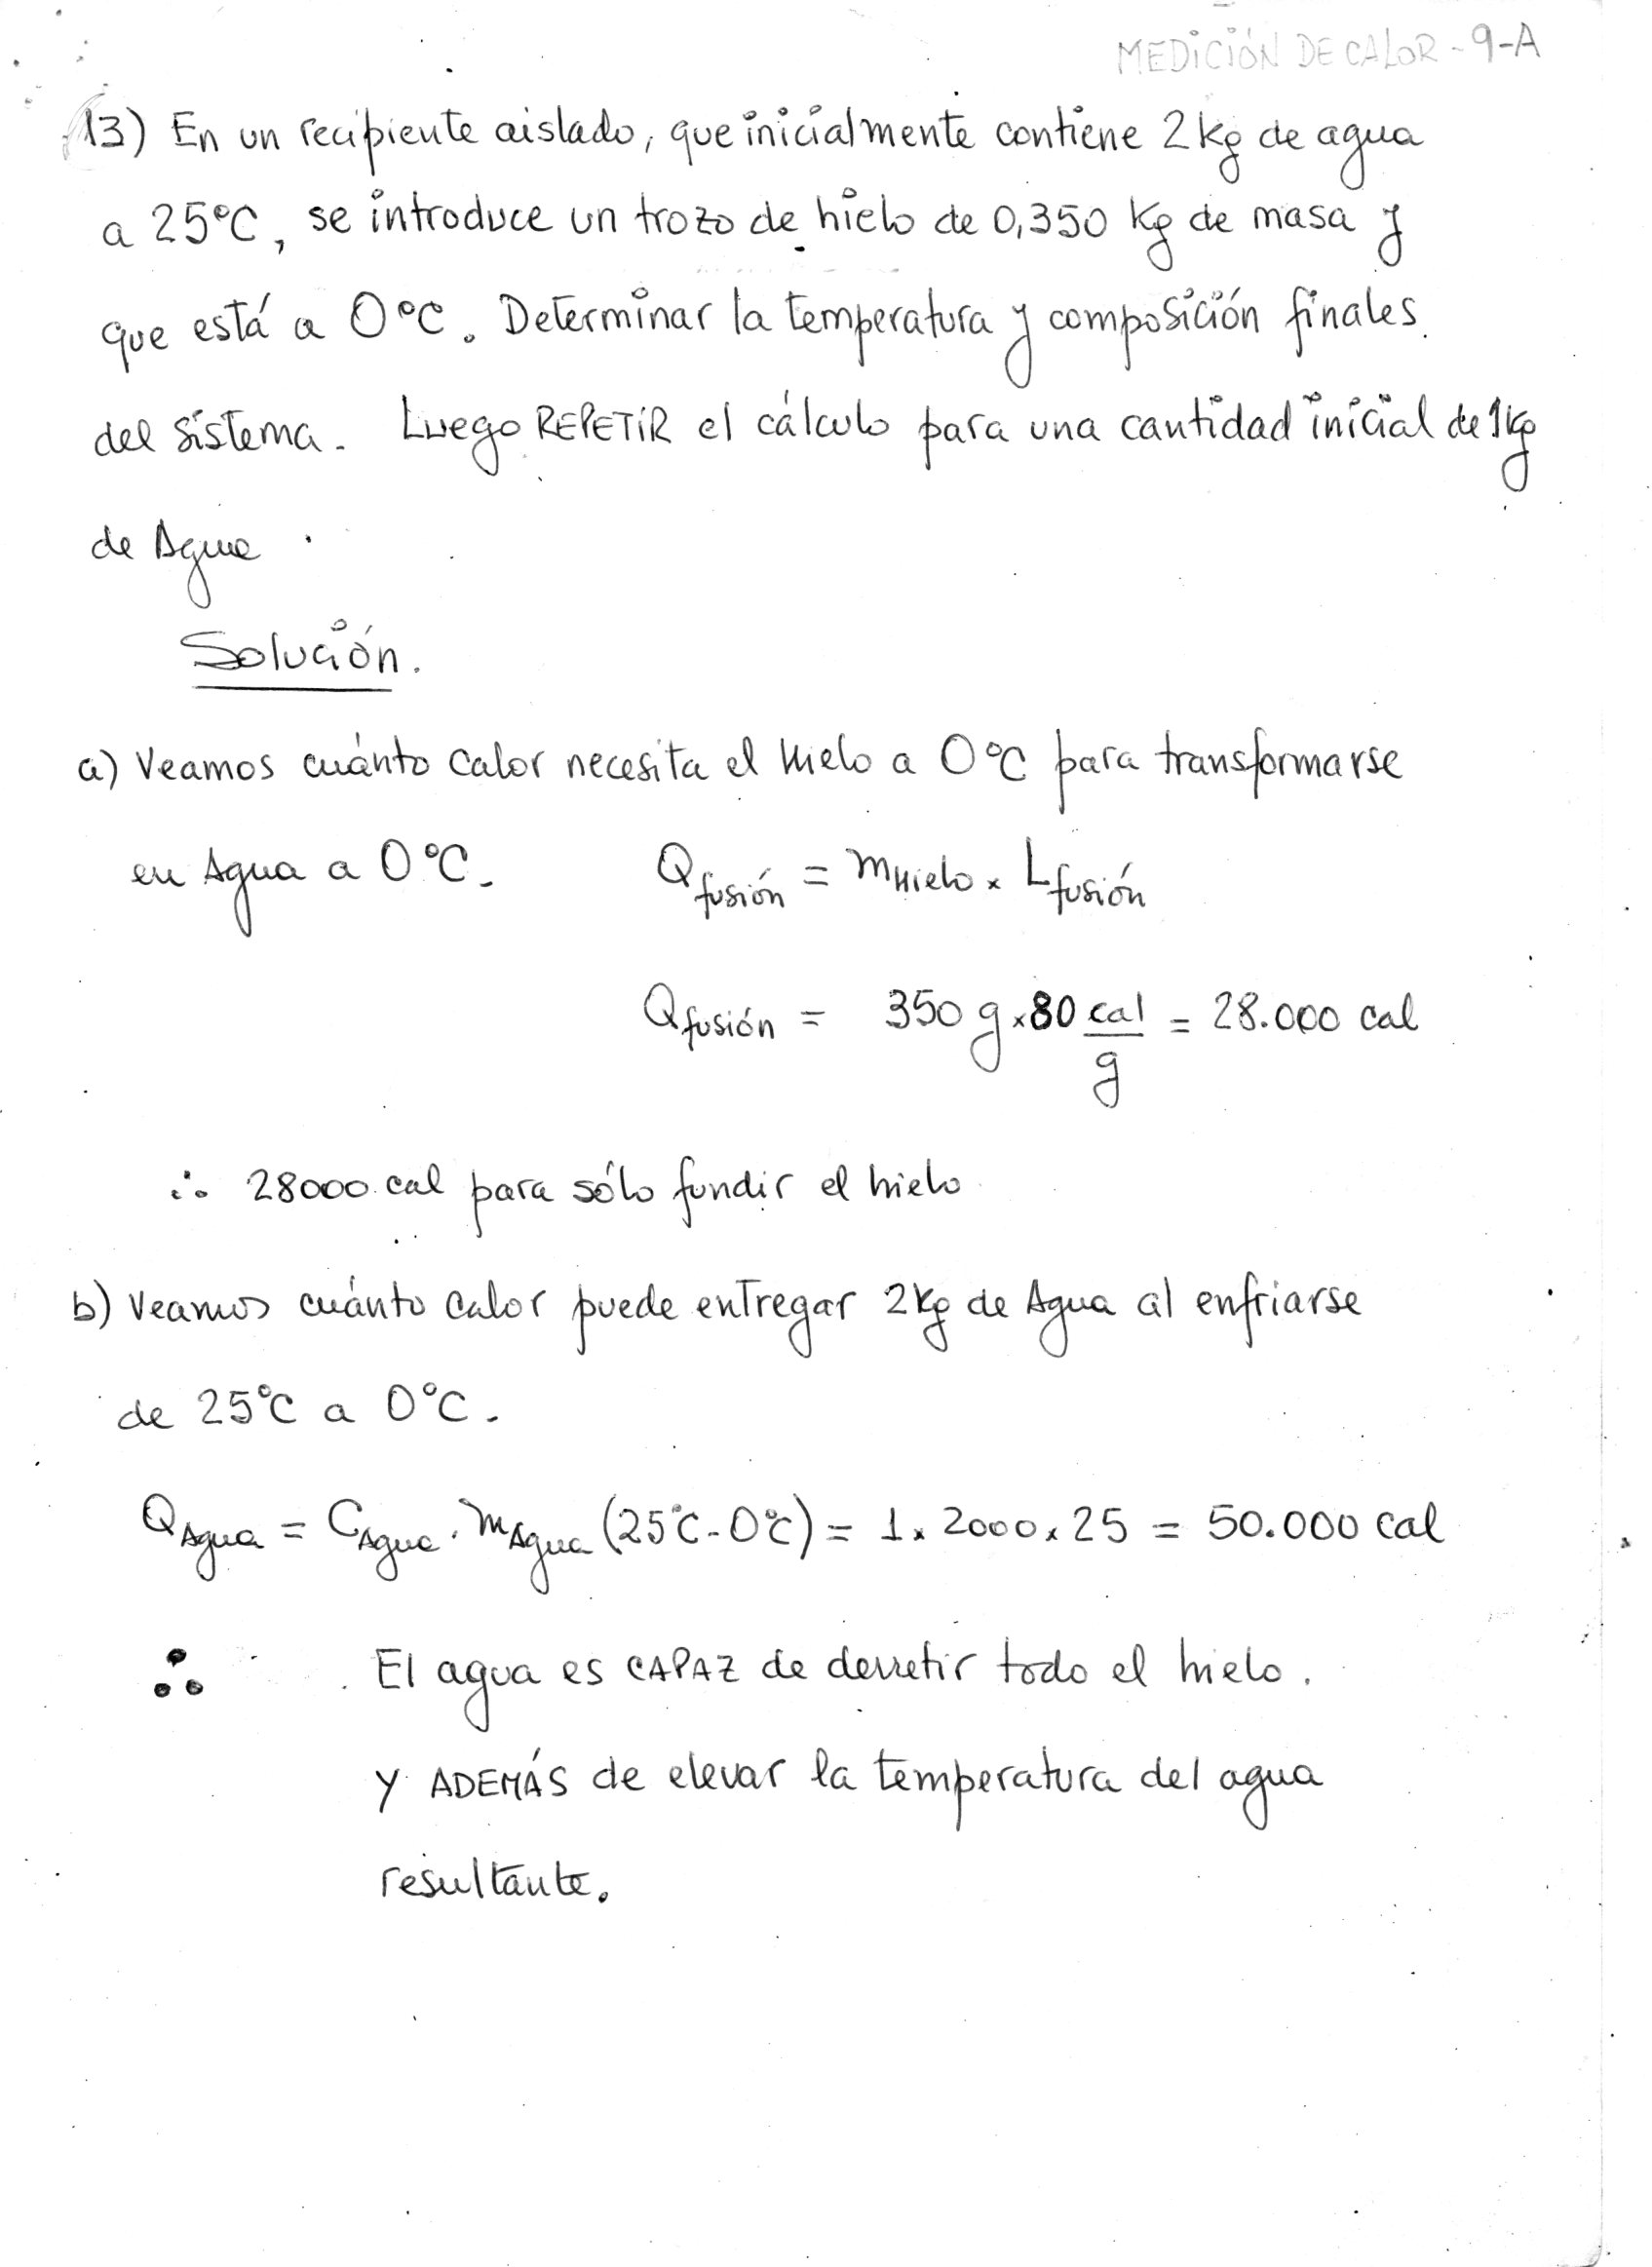 MEDICIÓN DE CALOR - 9-A
13) En un recipiente aislado, que inicialmente contiene 2 kg de agua
a 25°C, se introduce un trozo de hielo de 0,350 kg de masa y
que está a 0°C. Determinar la temperatura y composición finales
del sistema. Luego REPETIR el cálculo para una cantidad inicial de 1kg
de Agua.
Solución.
a) Veamos cuánto calor necesita el hielo a 0°C para transformarse
en Agua a 0°C. Qfusión = mHielo x Lfusión
Qfusión = 350 g x 80 cal/g = 28.000 cal
∴ 28000 cal para sólo fundir el hielo
b) Veamos cuánto calor puede entregar 2kg de Agua al enfriarse
de 25°C a 0°C.
QAgua = CAgua . mAgua (25°C - 0°C) = 1 x 2000 x 25 = 50.000 cal
∴ El agua es CAPAZ de derretir todo el hielo.
Y ADEMÁS de elevar la temperatura del agua
resultante.